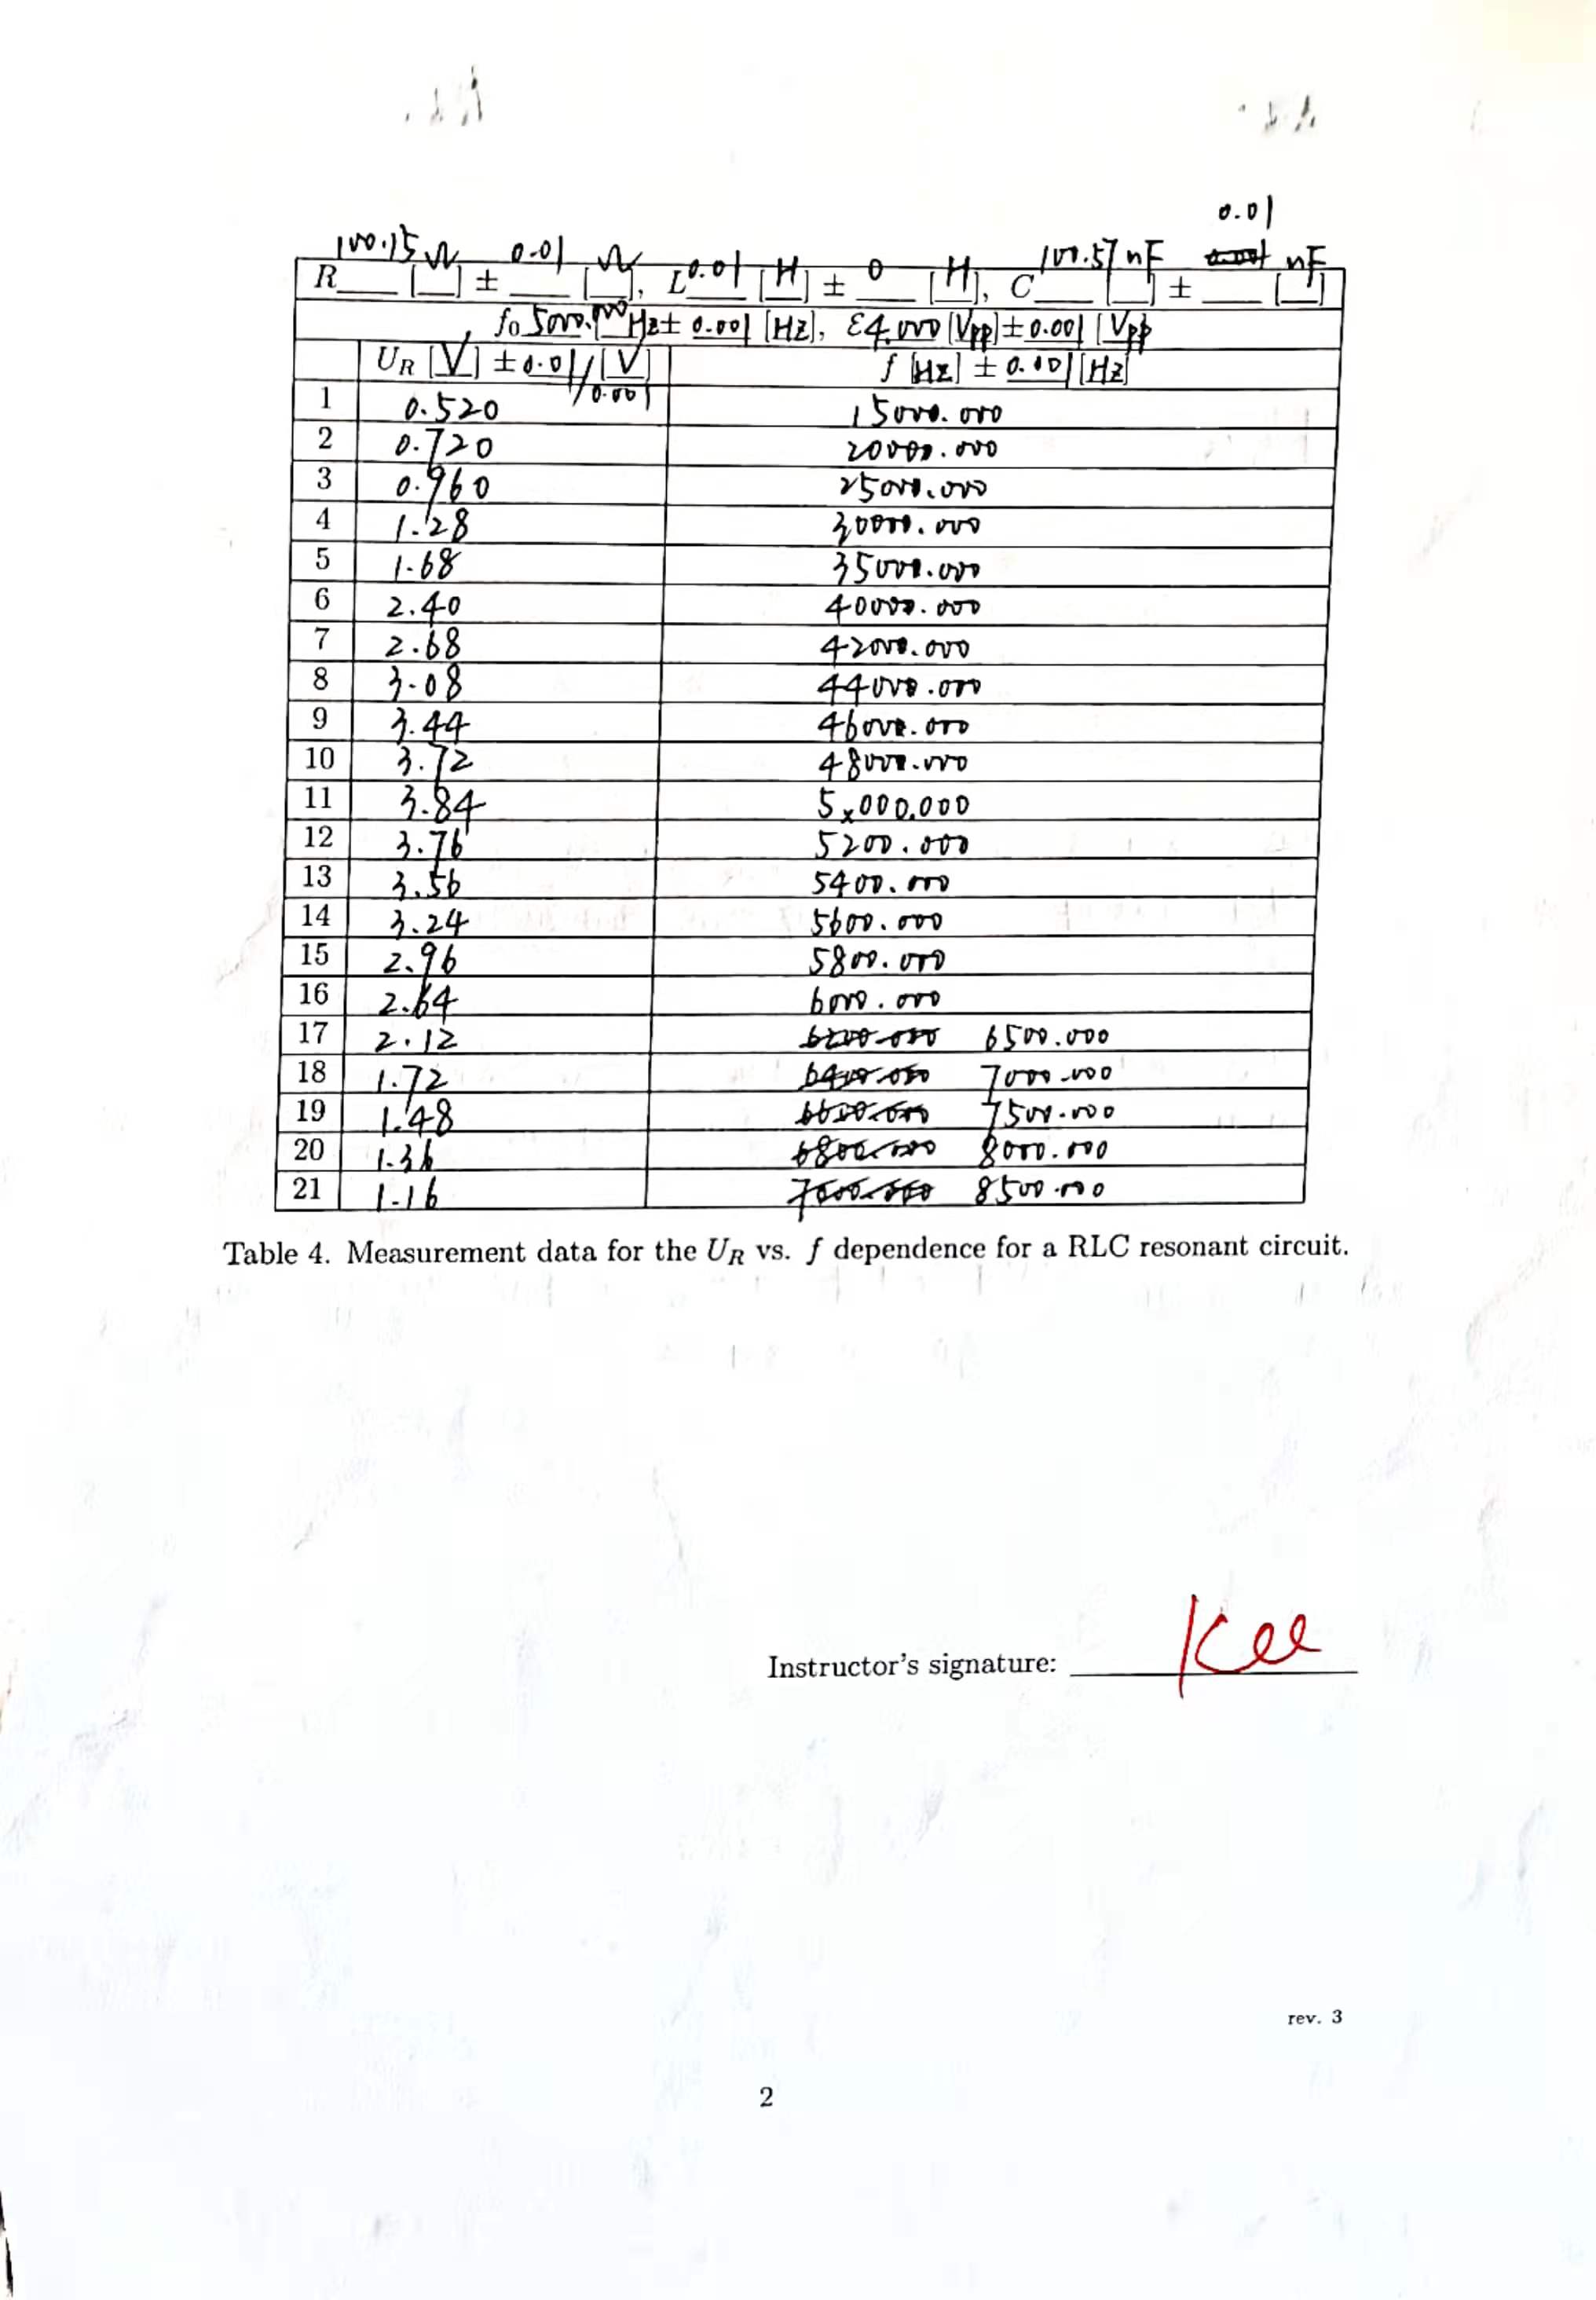 100.15 Ω 0.01 Ω 0.01 H 0 H 100.57 nF 0.01 nF
R____ [__] ± ____ [__], L____ [__] ± ____ [__], C____ [__] ± ____ [__]
f0 5000.000 Hz ± 0.001 [Hz], ε 4.000 [Vpp] ± 0.001 [Vpp]
UR [V] ± 0.01/0.001 [V] f [Hz] ± 0.001 [Hz]
1 0.520 15000.000
2 0.720 20000.000
3 0.960 25000.000
4 1.28 30000.000
5 1.68 35000.000
6 2.40 40000.000
7 2.68 42000.000
8 3.08 44000.000
9 3.44 46000.000
10 3.72 48000.000
11 3.84 5x000.000
12 3.76 5200.000
13 3.56 5400.000
14 3.24 5600.000
15 2.96 5800.000
16 2.64 6000.000
17 2.12 6200.000 6500.000
18 1.72 6400.000 7000.000
19 1.48 6600.000 7500.000
20 1.36 6800.000 8000.000
21 1.16 7000.000 8500.000
Table 4. Measurement data for the UR vs. f dependence for a RLC resonant circuit.
Instructor's signature: Kee
rev. 3
2